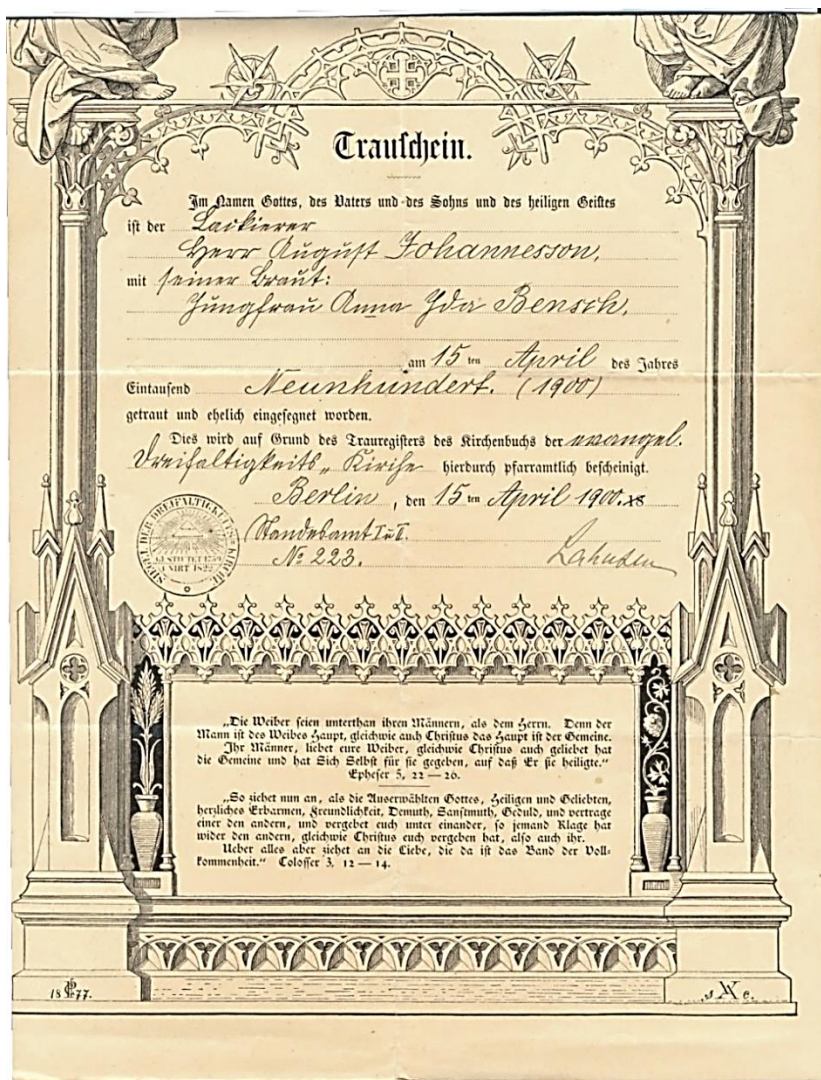 Trauschein.
Im Namen Gottes, des Vaters und des Sohns und des heiligen Geistes
ist der Lackierer
Herr August Johannesson,
mit seiner Braut:
Jungfrau Anna Ida Bensch,
am 15ten April des Jahres
Eintausend Neunhundert. (1900)
getraut und ehelich eingesegnet worden.
Dies wird auf Grund des Trauregisters des Kirchenbuchs der evangel.
Dreifaltigkeits-Kirche hierdurch pfarramtlich bescheinigt.
Berlin, den 15ten April 1900.
SIEGEL DER DREIFALTIGKEITS KIRCHE
GESTIFTET 1739
UNIRT 1822
Standesamt I u II.
No 223.
Lahusen
„Die Weiber seien unterthan ihren Männern, als dem Herrn. Denn der
Mann ist des Weibes Haupt, gleichwie auch Christus das Haupt ist der Gemeine.
Ihr Männer, liebet eure Weiber, gleichwie Christus auch geliebet hat
die Gemeine und hat Sich Selbst für sie gegeben, auf daß Er sie heiligte.“
Epheser 5, 22 — 26.
„So ziehet nun an, als die Auserwählten Gottes, Heiligen und Geliebten,
herzliches Erbarmen, Freundlichkeit, Demuth, Sanftmuth, Geduld, und vertrage
einer den andern, und vergebet euch unter einander, so jemand Klage hat
wider den andern, gleichwie Christus euch vergeben hat, also auch ihr.
Ueber alles aber ziehet an die Liebe, die da ist das Band der Voll-
kommenheit.“ Colosser 3, 12 — 14.
1877.